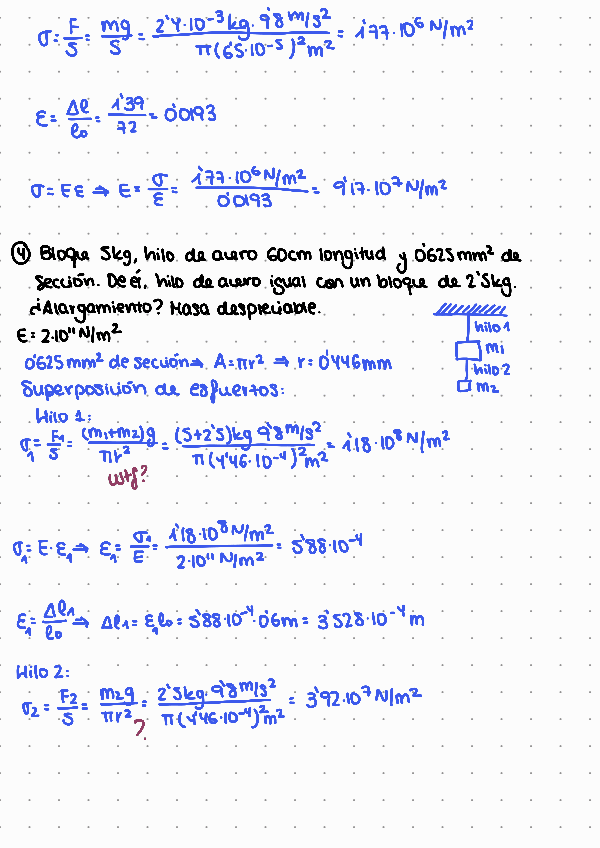 σ = F/S = mg/S = 2'4·10⁻³kg·9'8m/s² / π(65·10⁻⁵)²m² = 1'77·10⁶ N/m²
ε = Δl/l₀ = 1'39/72 = 0'0193
σ = Eε ⇒ E = σ/ε = 1'77·10⁶N/m² / 0'0193 = 9'17·10⁷N/m²
④ Bloque 5kg, hilo de acero 60cm longitud y 0'625mm² de
sección. De él, hilo de acero igual con un bloque de 2'5kg.
¿Alargamiento? Masa despreciable.
E = 2·10¹¹N/m²
hilo 1
m₁
hilo 2
m₂
0'625mm² de sección ⇒ A=πr² ⇒ r=0'446mm
Superposición de esfuertos:
Hilo 1:
σ₁ = F₁/S = (m₁+m₂)g / πr² = (5+2'5)kg 9'8m/s² / π(4'46·10⁻⁴)²m² = 1'18·10⁸N/m²
wtf?
σ₁ = E·ε₁ ⇒ ε₁ = σ₁/E = 1'18·10⁸N/m² / 2·10¹¹N/m² = 5'88·10⁻⁴
ε₁ = Δl₁/l₀ ⇒ Δl₁ = ε₁l₀ = 5'88·10⁻⁴·0'6m = 3'528·10⁻⁴m
Hilo 2:
σ₂ = F₂/S = m₂g/πr² = 2'5kg·9'8m/s² / π(4'46·10⁻⁴)²m² = 3'92·10⁷N/m²
?